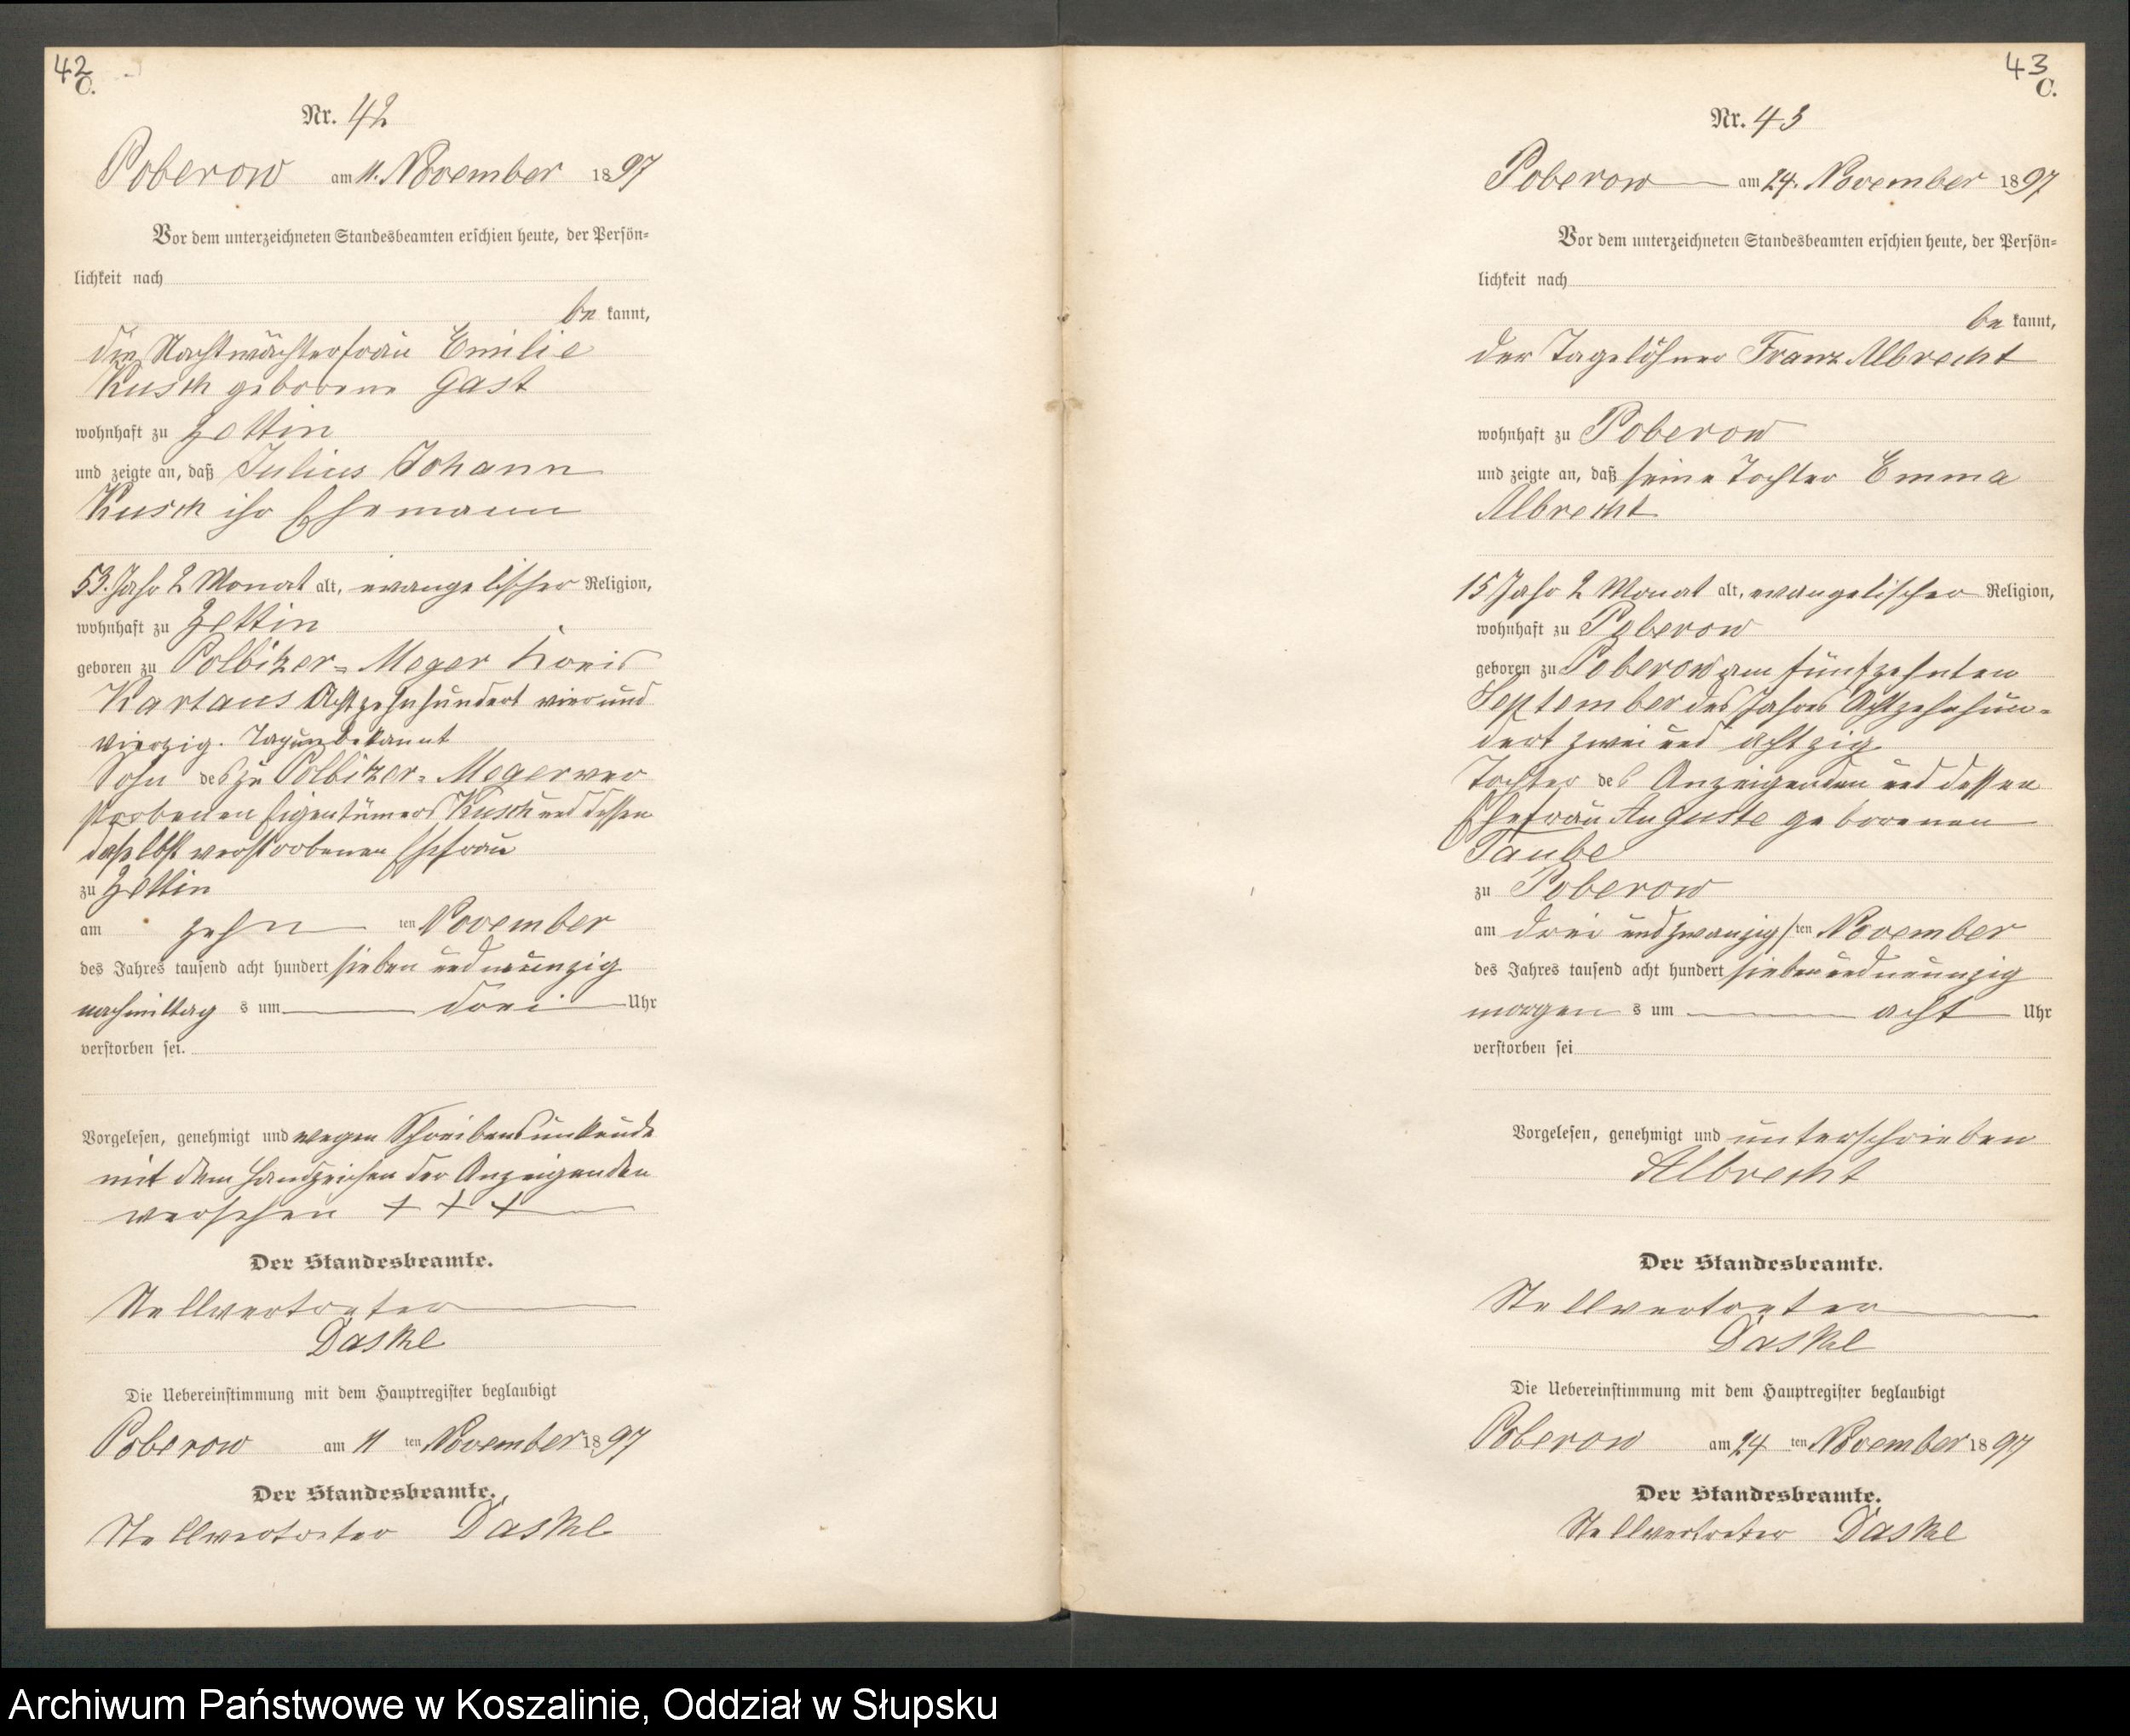 42
C.
Nr. 42
Poberow am 11. November 1897
Vor dem unterzeichneten Standesbeamten erschien heute, der Persön-
lichkeit nach
be kannt,
die Nachtwächterfrau Emilie
Kusch geborene Gast
wohnhaft zu Zettin
und zeigte an, daß Julius Johann
Kusch ihr Ehemann
53. Jahr 2 Monat alt, evangelischer Religion,
wohnhaft zu Zettin
geboren zu Polbitzer-Meger Kreis
Kartaus Achtzehnhundert vierund
vierzig. Tag unbekannt
Sohn des zu Polbitzer-Meger ver
storbenen Eigentümers Kusch und dessen
daselbst verstorbenen Ehefrau
zu Zettin
am zehn ten November
des Jahres tausend acht hundert sieben und neunzig
nachmittag s um drei Uhr
verstorben sei.
Vorgelesen, genehmigt und wegen Schreibensunkunde
mit dem Handzeichen der Anzeigenden
versehen + + +
Der Standesbeamte.
Stellvertreter
Daske
Die Uebereinstimmung mit dem Hauptregister beglaubigt
Poberow am 11 ten November 1897
Der Standesbeamte.
Stellvertreter Daske
43
C.
Nr. 43
Poberow am 24. November 1897
Vor dem unterzeichneten Standesbeamten erschien heute, der Persön-
lichkeit nach
be kannt,
der Tagelöhner Franz Albrecht
wohnhaft zu Poberow
und zeigte an, daß seine Tochter Emma
Albrecht
15 Jahr 2 Monat alt, evangelischer Religion,
wohnhaft zu Poberow
geboren zu Poberow am fünfzehnten
September des Jahres Achtzehnhun-
dert zwei und achtzig
Tochter des Anzeigenden und dessen
Ehefrau Auguste geborenen
Taube
zu Poberow
am drei und zwanzigs ten November
des Jahres tausend acht hundert sieben und neunzig
morgen s um acht Uhr
verstorben sei
Vorgelesen, genehmigt und unterschrieben
Albrecht
Der Standesbeamte.
Stellvertreter
Daske
Die Uebereinstimmung mit dem Hauptregister beglaubigt
Poberow am 24 ten November 1897
Der Standesbeamte.
Stellvertreter Daske
Archiwum Państwowe w Koszalinie, Oddział w Słupsku